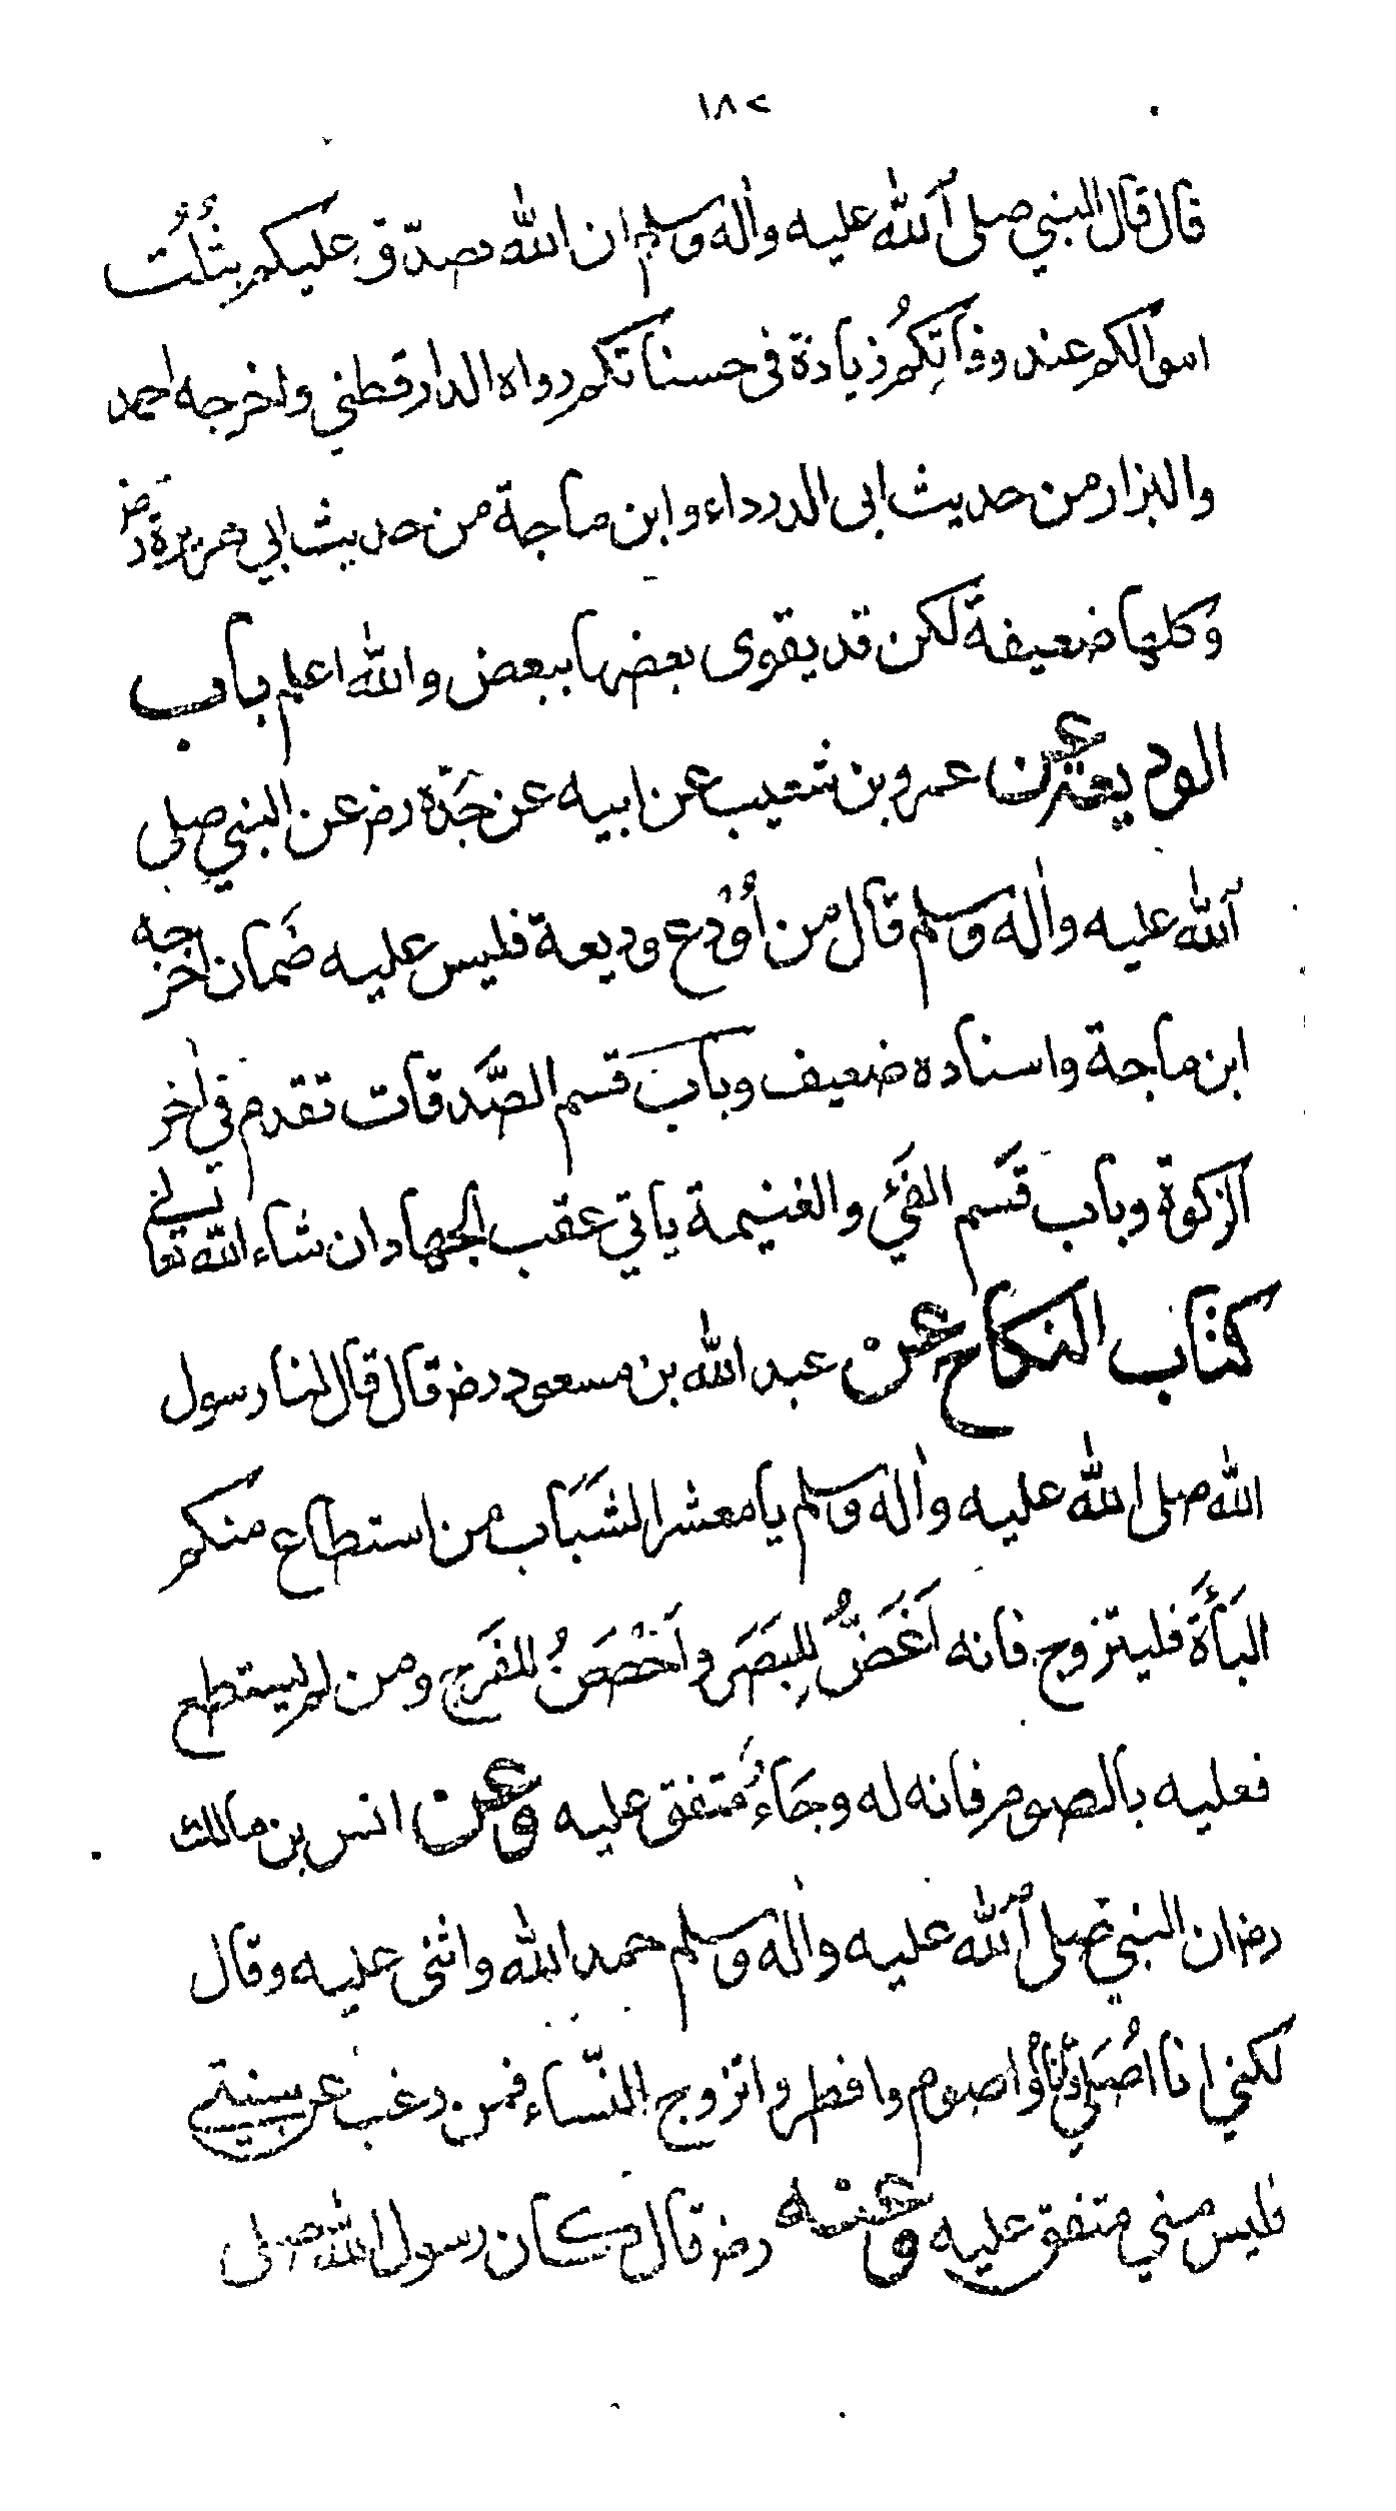 ١٨٢
قال قال النبي صلى الله عليه واله وسلم ان الله تصدّق عليكم بثُلُث
اموالكم عند وفاتِكُم زيادة فى حسناتكم رواه الدارقطني واخرجه احمد
والبزار من حديث ابى الدرداء وابن ماجة من حديث ابي هريرة رض
وكلها ضعيفة لكن قد يقوى بعضها ببعض والله اعلم باب
الوديعة عن عمرو بن شعيب عن ابيه عن جَدّه رض عن النبي صلى
الله عليه واله وسلم قال من أُوْدِع وديعة فليس عليه ضَمان اخرجه
ابن ماجة واسناده ضعيف وباب قسم الصَّدقات تقدم في اخر
الزكوة وباب قَسم الفَئ والغنيمة ياتي عقب الجهاد ان شاء الله تعالى
كتاب النكاح عنْ عبد الله بن مسعود رض قال قال لنا رسول
الله صلى الله عليه واله وسلم يا معشر الشَبَاب من استطاع منكم
البَأَةَ فليتزوج فانه اَغَضُّ لِلبَصَر واَحْصَنُ للفَرج ومن لم يستطع
فعليه بالصوم فانه له وجَاءُ متفق عليه وعن انس بن مالك
رض ان النبي صلى الله عليه واله وسلم حمد الله واثنى عليه وقال
لكني انا اُصَلي وَأنَامُ واصوم وافطر واتزوج النّساء فمن رغب عن سنتي
فليس مني متفق عليه وعنْه رض قال كان رسول الله صلى